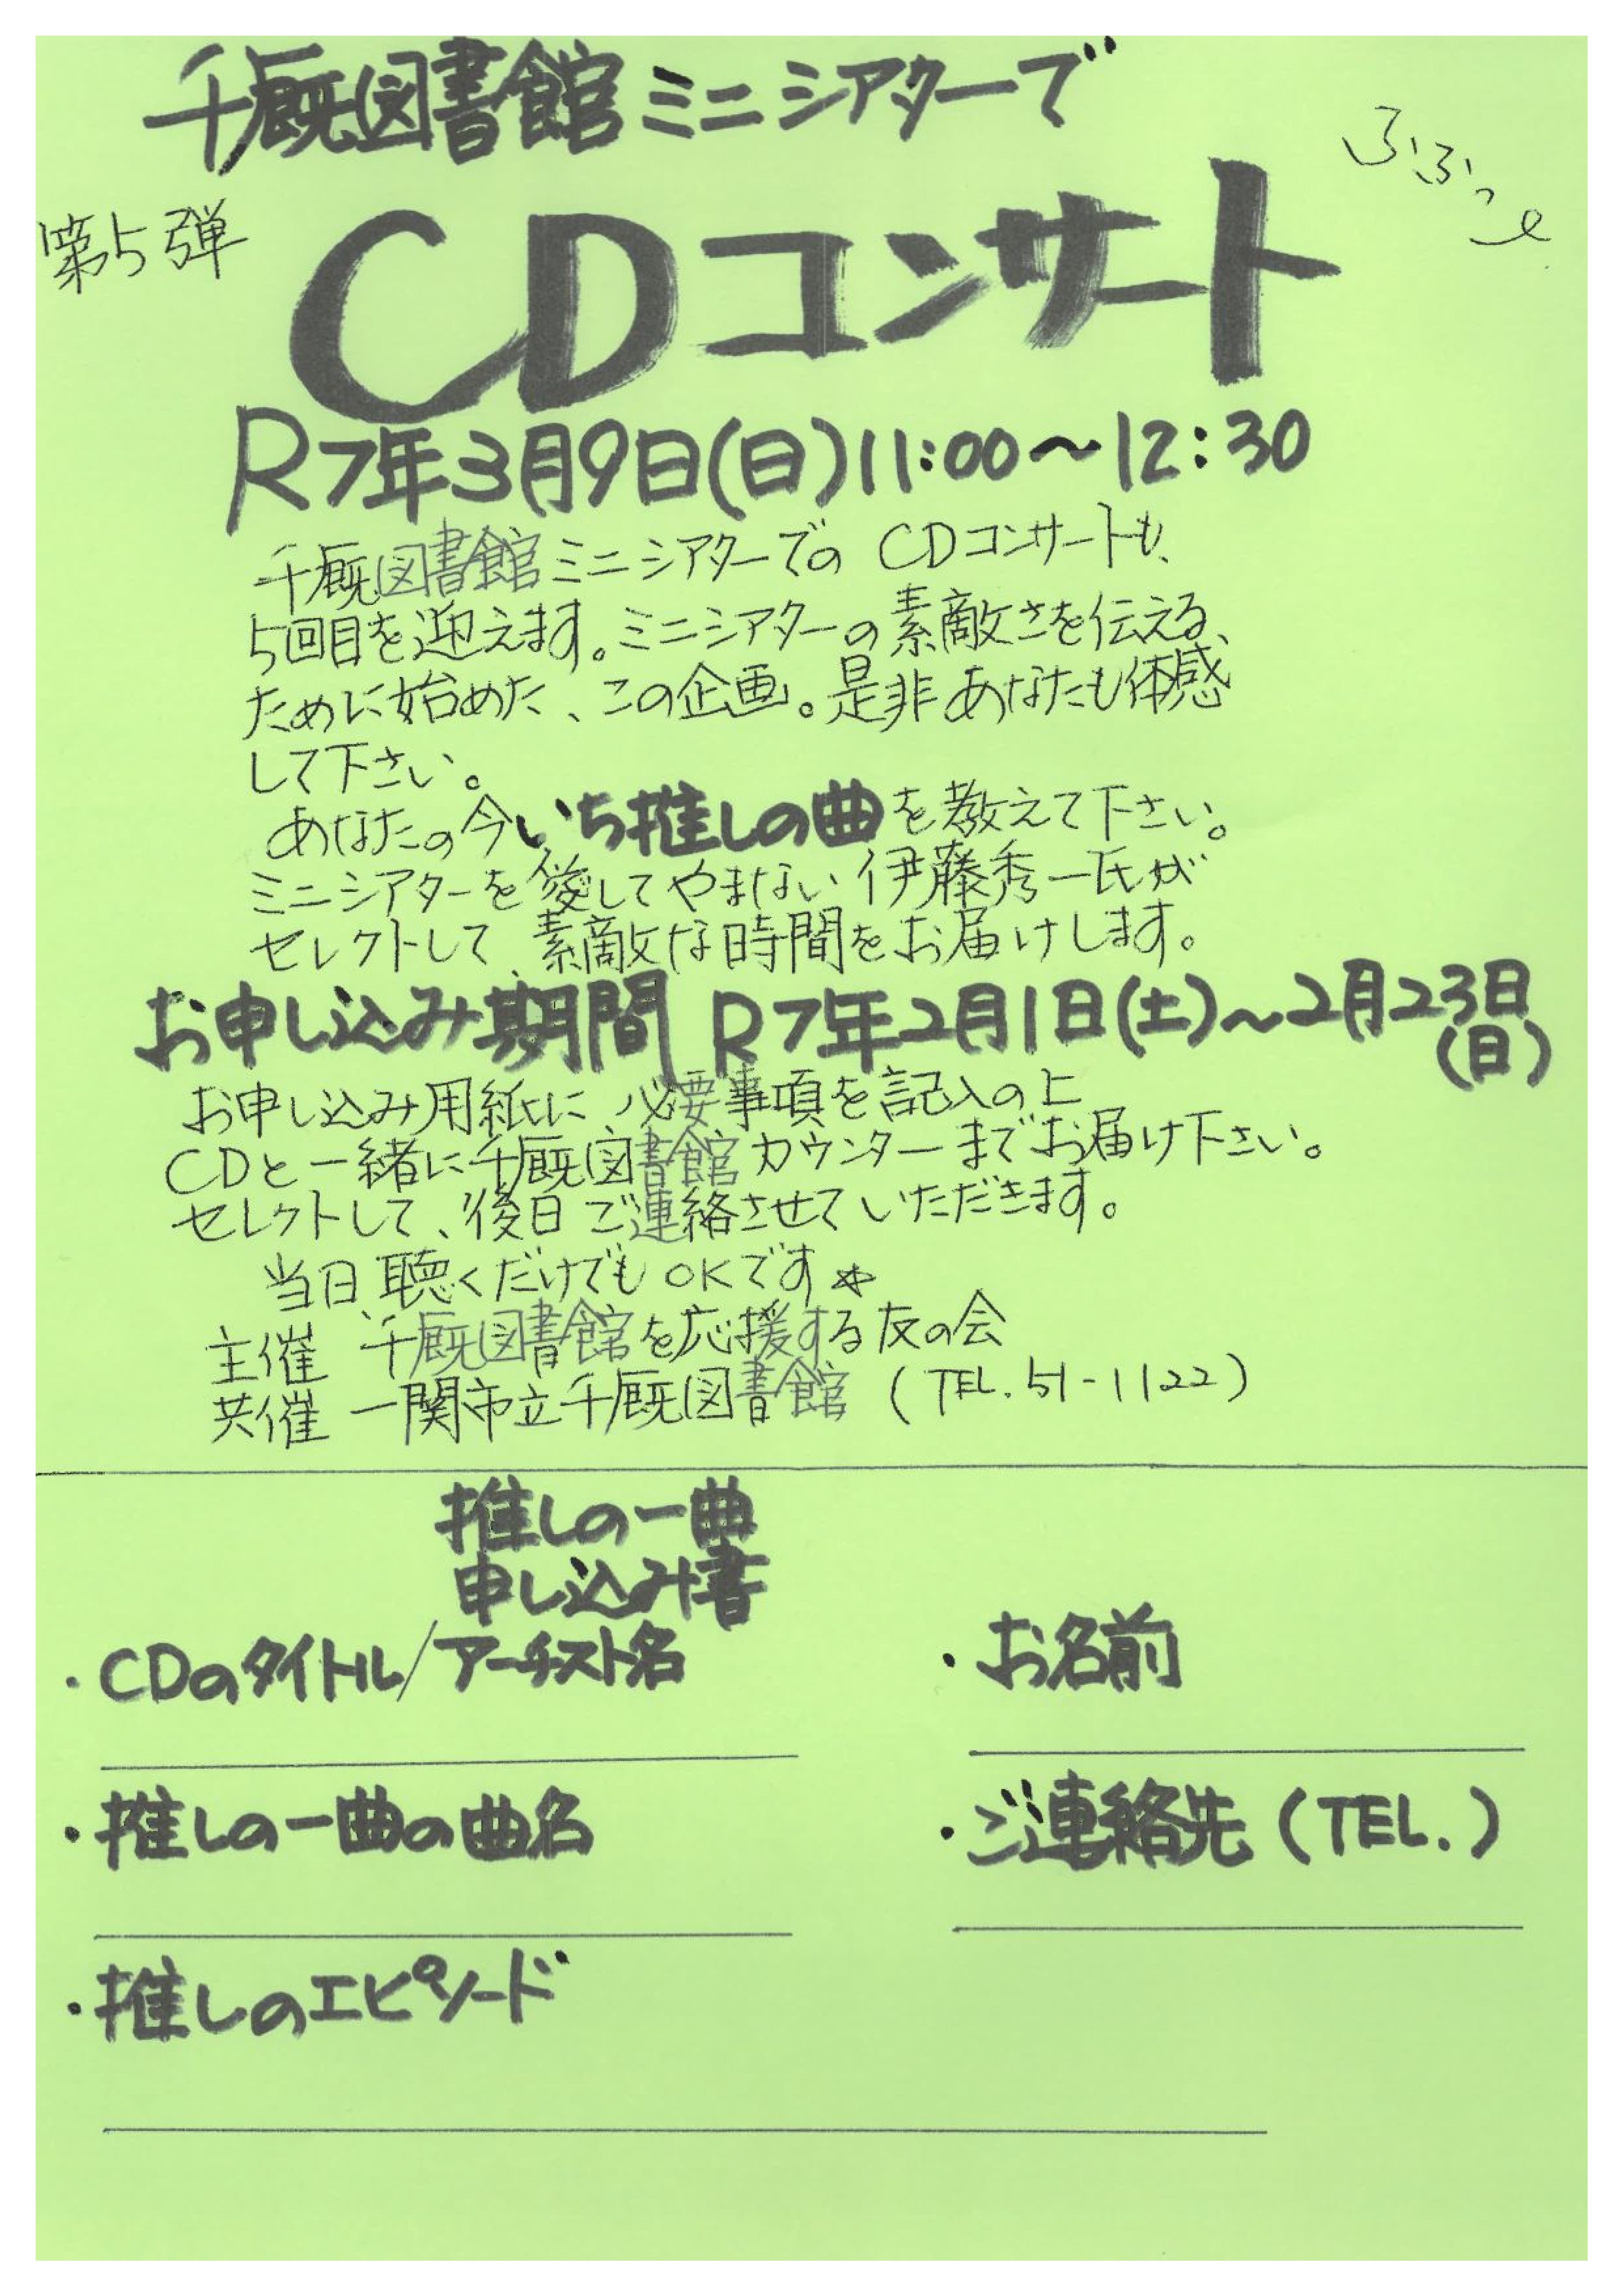 千厩図書館ミニシアターで
ふふっe
第5弾
CDコンサート
R7年3月9日(日)11:00～12:30
千厩図書館ミニシアターでの CDコンサートも、
5回目を迎えます。ミニシアターの素敵さを伝える、
ために始めた、この企画。是非あなたも体感
して下さい。
あなたの今いち推しの曲を教えて下さい。
ミニシアターを愛してやまない伊藤秀一氏が
セレクトして、素敵な時間をお届けします。
お申し込み期間 R7年2月1日(土)～2月23日
(日)
お申し込み用紙に必要事項を記入の上
CDと一緒に千厩図書館カウンターまでお届け下さい。
セレクトして、後日ご連絡させていただきます。
当日、聴くだけでもOKです☆
主催 千厩図書館を応援する友の会
共催 一関市立千厩図書館 (TEL.51-1122)
推しの一曲
申し込み書
・CDのタイトル/アーチスト名
・お名前
・推しの一曲の曲名
・ご連絡先(TEL.)
・推しのエピソード